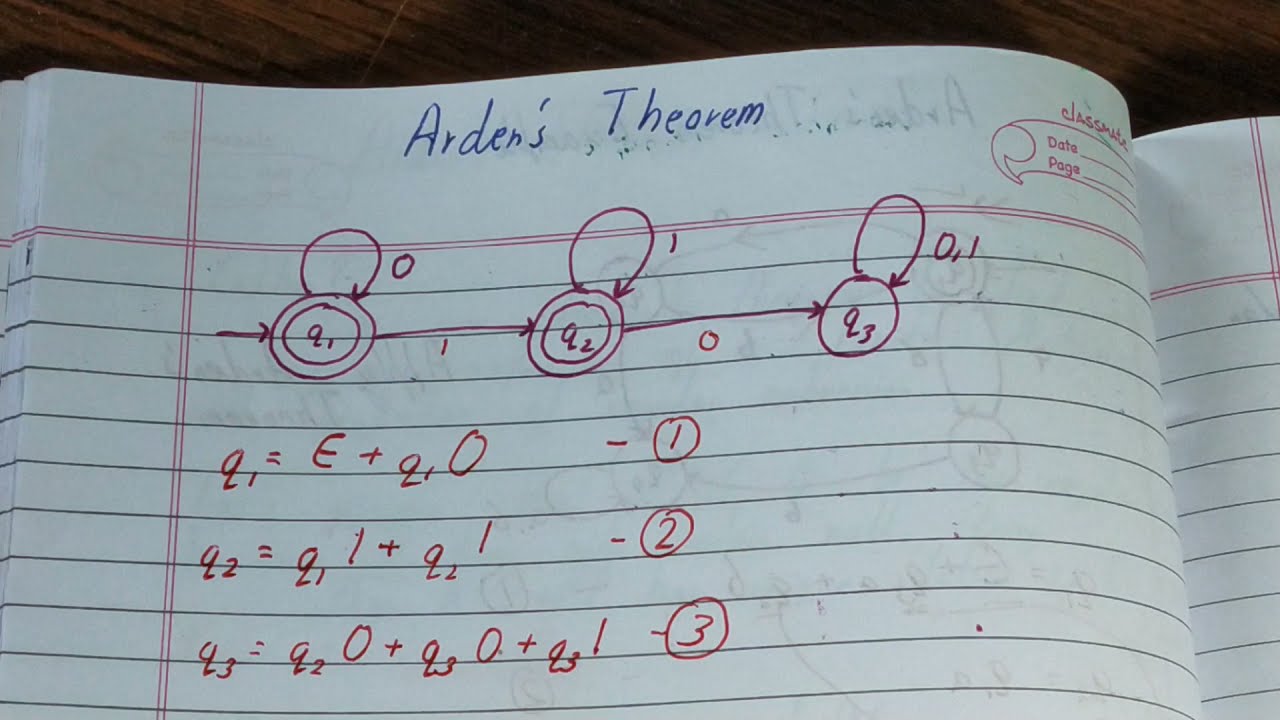 Arden's Theorem
classmate
Date
Page
0 1 0,1
q₁ 1 q₂ 0 q₃
q₁ = ∈ + q₁0 - ①
q₂ = q₁1 + q₂1 - ②
q₃ = q₂0 + q₃0 + q₃1 - ③